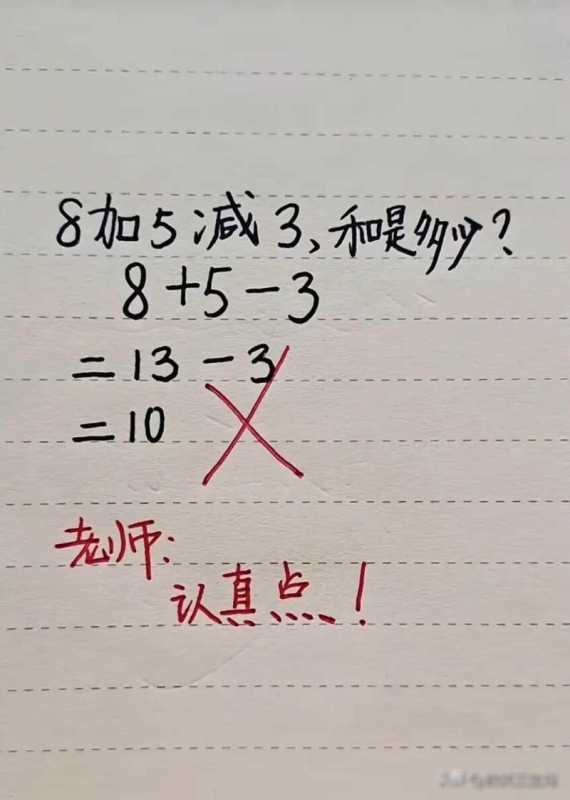 8加5减3,和是多少?
8+5-3
=13-3
=10
老师:
认真点!